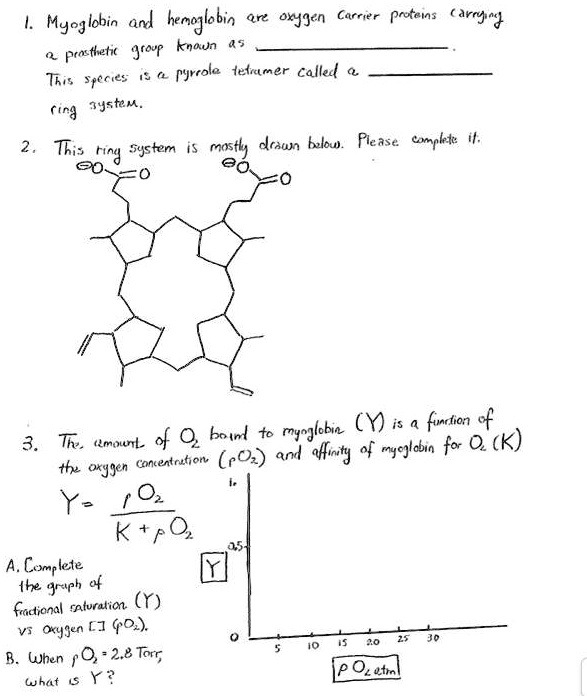 1. Myoglobin and hemoglobin are oxygen carrier proteins carrying
a prosthetic group known as ____________.
This species is a pyrrole tetramer called a ____________
ring system.
2. This ring system is mostly drawn below. Please complete it.
⊖O O ⊖O O
3. The amount of O₂ bound to myoglobin (Y) is a function of
the oxygen concentration (pO₂) and affinity of myoglobin for O₂ (K)
Y = pO₂
K + pO₂
A. Complete
the graph of
fractional saturation (Y)
vs oxygen [] (pO₂).
B. When pO₂ = 2.8 Torr,
what is Y?
1.
0.5
Y
0 5 10 15 20 25 30
pO₂ atm